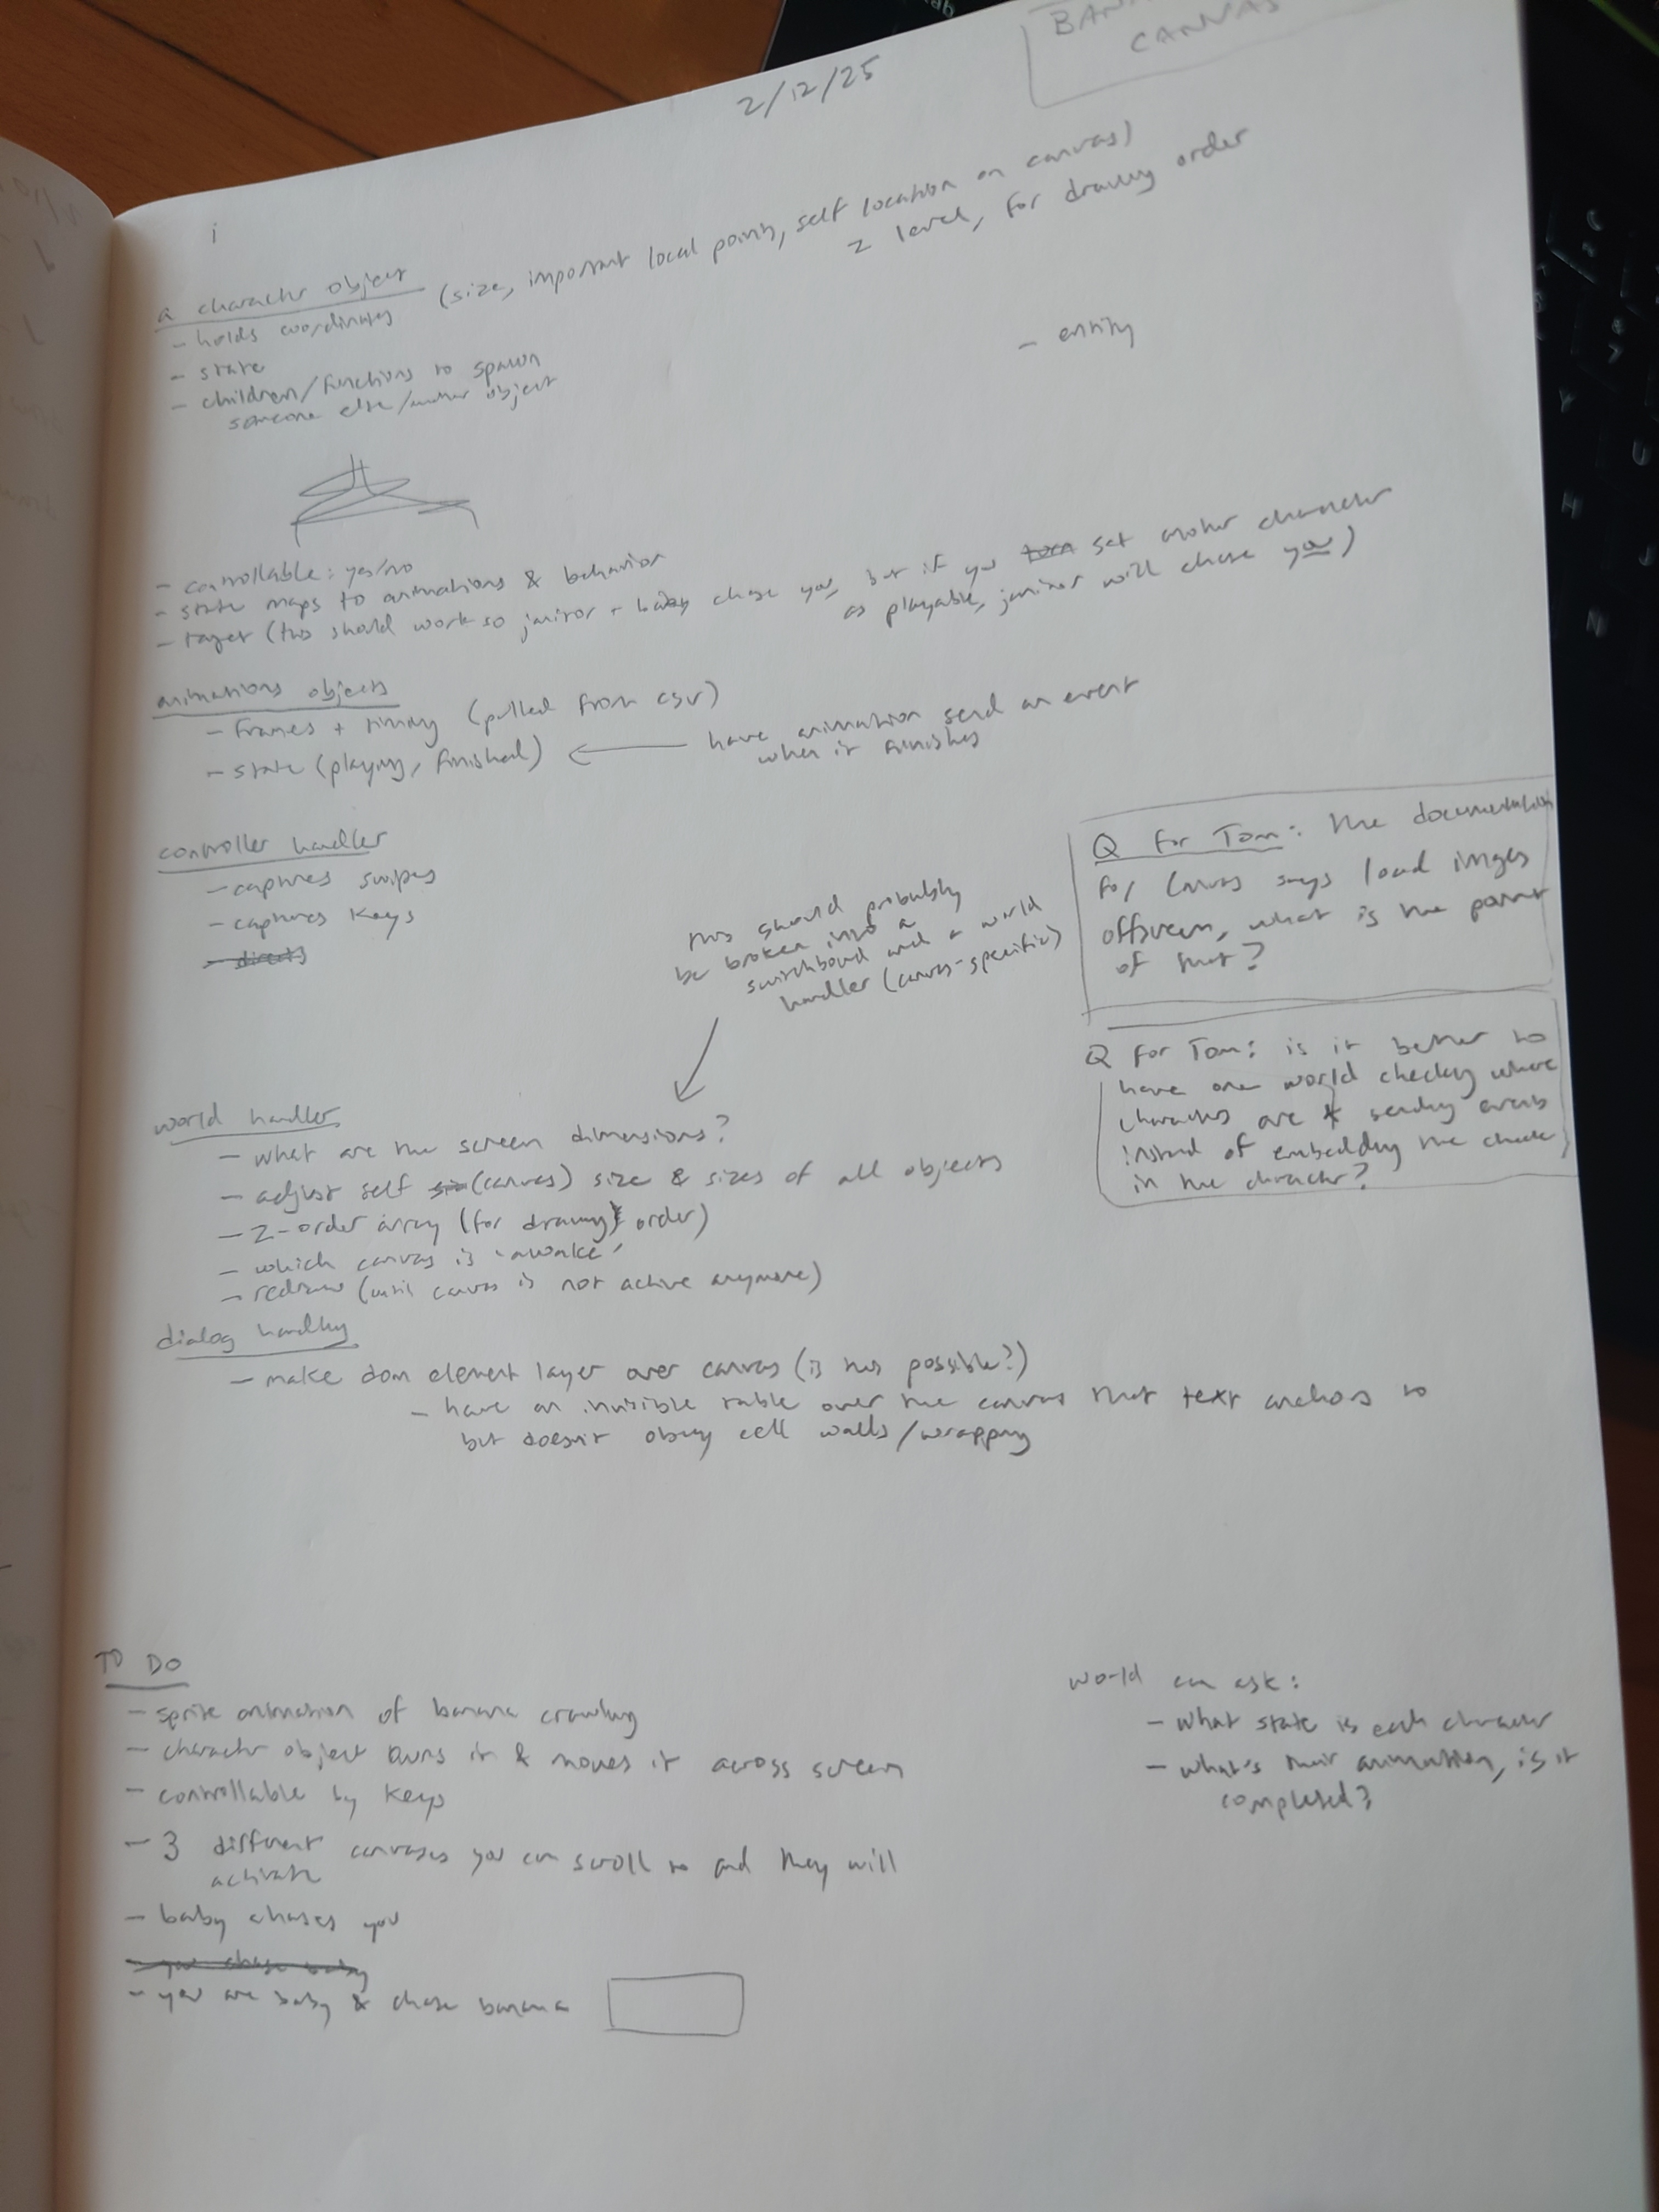 CANVAS
2/12/25
i
a character object
- holds coordinates (size, important local points, self location on canvas)
z level, for drawing order
- state
- children/functions to spawn
someone else/another object
- entity
- controllable: yes/no
- state maps to animations & behavior
- target (this should work so janitor + baby chase you, but if you set another character
as playable, janitor will chase you)
animations objects
- frames + timing (pulled from csv)
- state (playing, finished)
have animation send an event
when it finishes
controller handler
- captures swipes
- captures keys
- directs
this should probably
be broken into a
switchboard and a world
handler (canvas-specific)
Q for Tom: the documentation
for Canvas says load images
offscreen, what is the point
of that?
Q for Tom: is it better to
have one world checking where
characters are & sending events
instead of embedding the check
in the character?
world handler
- what are the screen dimensions?
- adjust self (canvas) size & sizes of all objects
- z-order array (for drawing order)
- which canvas is 'awake'
- redraw (until canvas is not active anymore)
dialog handling
- make dom element layer over canvas (is this possible?)
- have an invisible table over the canvas that text anchors to
but doesn't obey cell walls/wrapping
TO DO
- sprite animation of banana crawling
- character object owns it & moves it across screen
- controllable by keys
- 3 different canvases you can scroll to and they will
activate
- baby chases you
- you chase baby
- you are baby & chase banana
world can ask:
- what state is each character
- what's their animation, is it
completed?